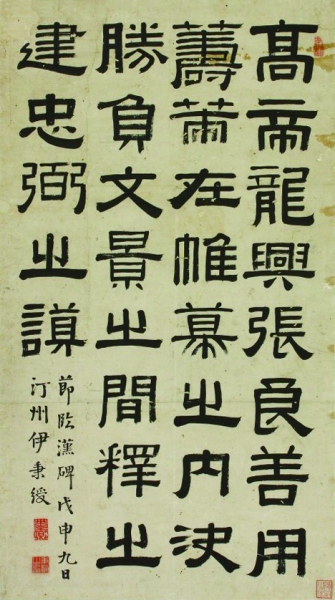 高帝龍興張良善用
籌策在帷幕之内決
勝負文景之間釋之
建忠弼之謨
節臨漢碑戊申九日
汀州伊秉綬